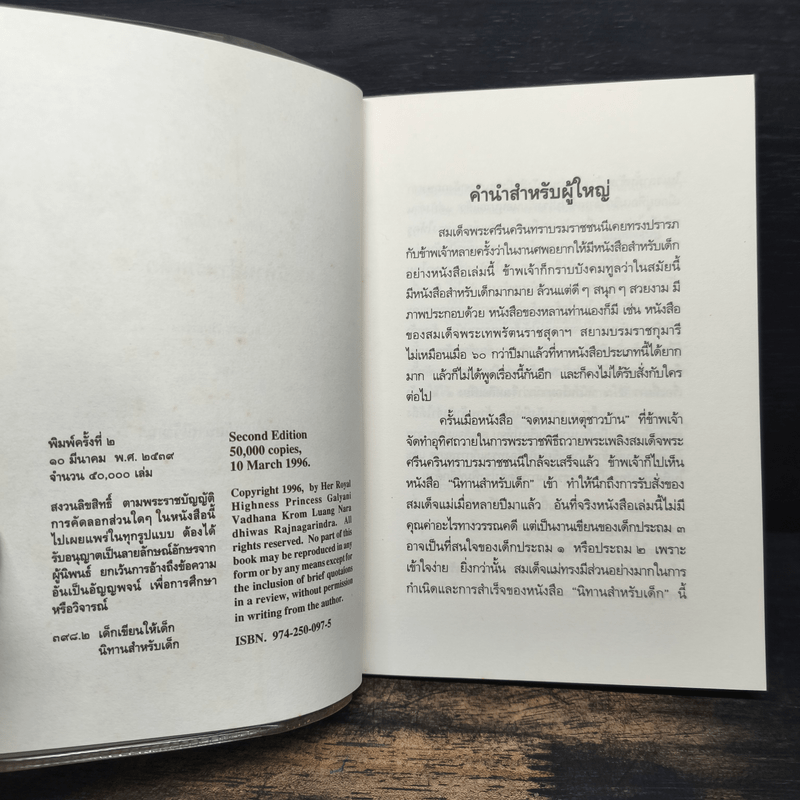 พิมพ์ครั้งที่ ๒
๑๐ มีนาคม พ.ศ. ๒๕๓๙
จำนวน ๕๐,๐๐๐ เล่ม
สงวนลิขสิทธิ์ ตามพระราชบัญญัติ
การคัดลอกส่วนใดๆ ในหนังสือนี้
ไปเผยแพร่ในทุกรูปแบบ ต้องได้
รับอนุญาตเป็นลายลักษณ์อักษรจาก
ผู้นิพนธ์ ยกเว้นการอ้างถึงข้อความ
อันเป็นอัญญพจน์ เพื่อการศึกษา
หรือวิจารณ์
๓๙๘.๒ เด็กเขียนให้เด็ก
นิทานสำหรับเด็ก
Second Edition
50,000 copies,
10 March 1996.
Copyright 1996, by Her Royal
Highness Princess Galyani
Vadhana Krom Luang Nara
dhiwas Rajnagarindra. All
rights reserved. No part of this
book may be reproduced in any
form or by any means except for
the inclusion of brief quotaions
in a review, without permission
in writing from the author.
ISBN. 974-250-097-5
คำนำสำหรับผู้ใหญ่
สมเด็จพระศรีนครินทราบรมราชชนนีเคยทรงปรารภ
กับข้าพเจ้าหลายครั้งว่าในงานศพอยากให้มีหนังสือสำหรับเด็ก
อย่างหนังสือเล่มนี้ ข้าพเจ้าก็กราบบังคมทูลว่าในสมัยนี้
มีหนังสือสำหรับเด็กมากมาย ล้วนแต่ดีๆ สนุกๆ สวยงาม มี
ภาพประกอบด้วย หนังสือของหลานท่านเองก็มี เช่น หนังสือ
ของสมเด็จพระเทพรัตนราชสุดาฯ สยามบรมราชกุมารี
ไม่เหมือนเมื่อ ๖๐ กว่าปีมาแล้วที่หาหนังสือประเภทนี้ได้ยาก
มาก แล้วก็ไม่ได้พูดเรื่องนี้กันอีก และก็คงไม่ได้รับสั่งกับใคร
ต่อไป
ครั้นเมื่อหนังสือ “จดหมายเหตุชาวบ้าน” ที่ข้าพเจ้า
จัดทำอุทิศถวายในการพระราชพิธีถวายพระเพลิงสมเด็จพระ
ศรีนครินทราบรมราชชนนีใกล้จะเสร็จแล้ว ข้าพเจ้าก็ไปเห็น
หนังสือ “นิทานสำหรับเด็ก” เข้า ทำให้นึกถึงการรับสั่งของ
สมเด็จแม่เมื่อหลายปีมาแล้ว อันที่จริงหนังสือเล่มนี้ไม่มี
คุณค่าอะไรทางวรรณคดี แต่เป็นงานเขียนของเด็กประถม ๓
อาจเป็นที่สนใจของเด็กประถม ๑ หรือประถม ๒ เพราะ
เข้าใจง่าย ยิ่งกว่านั้น สมเด็จแม่ทรงมีส่วนอย่างมากในการ
กำเนิดและการสำเร็จของหนังสือ “นิทานสำหรับเด็ก” นี้